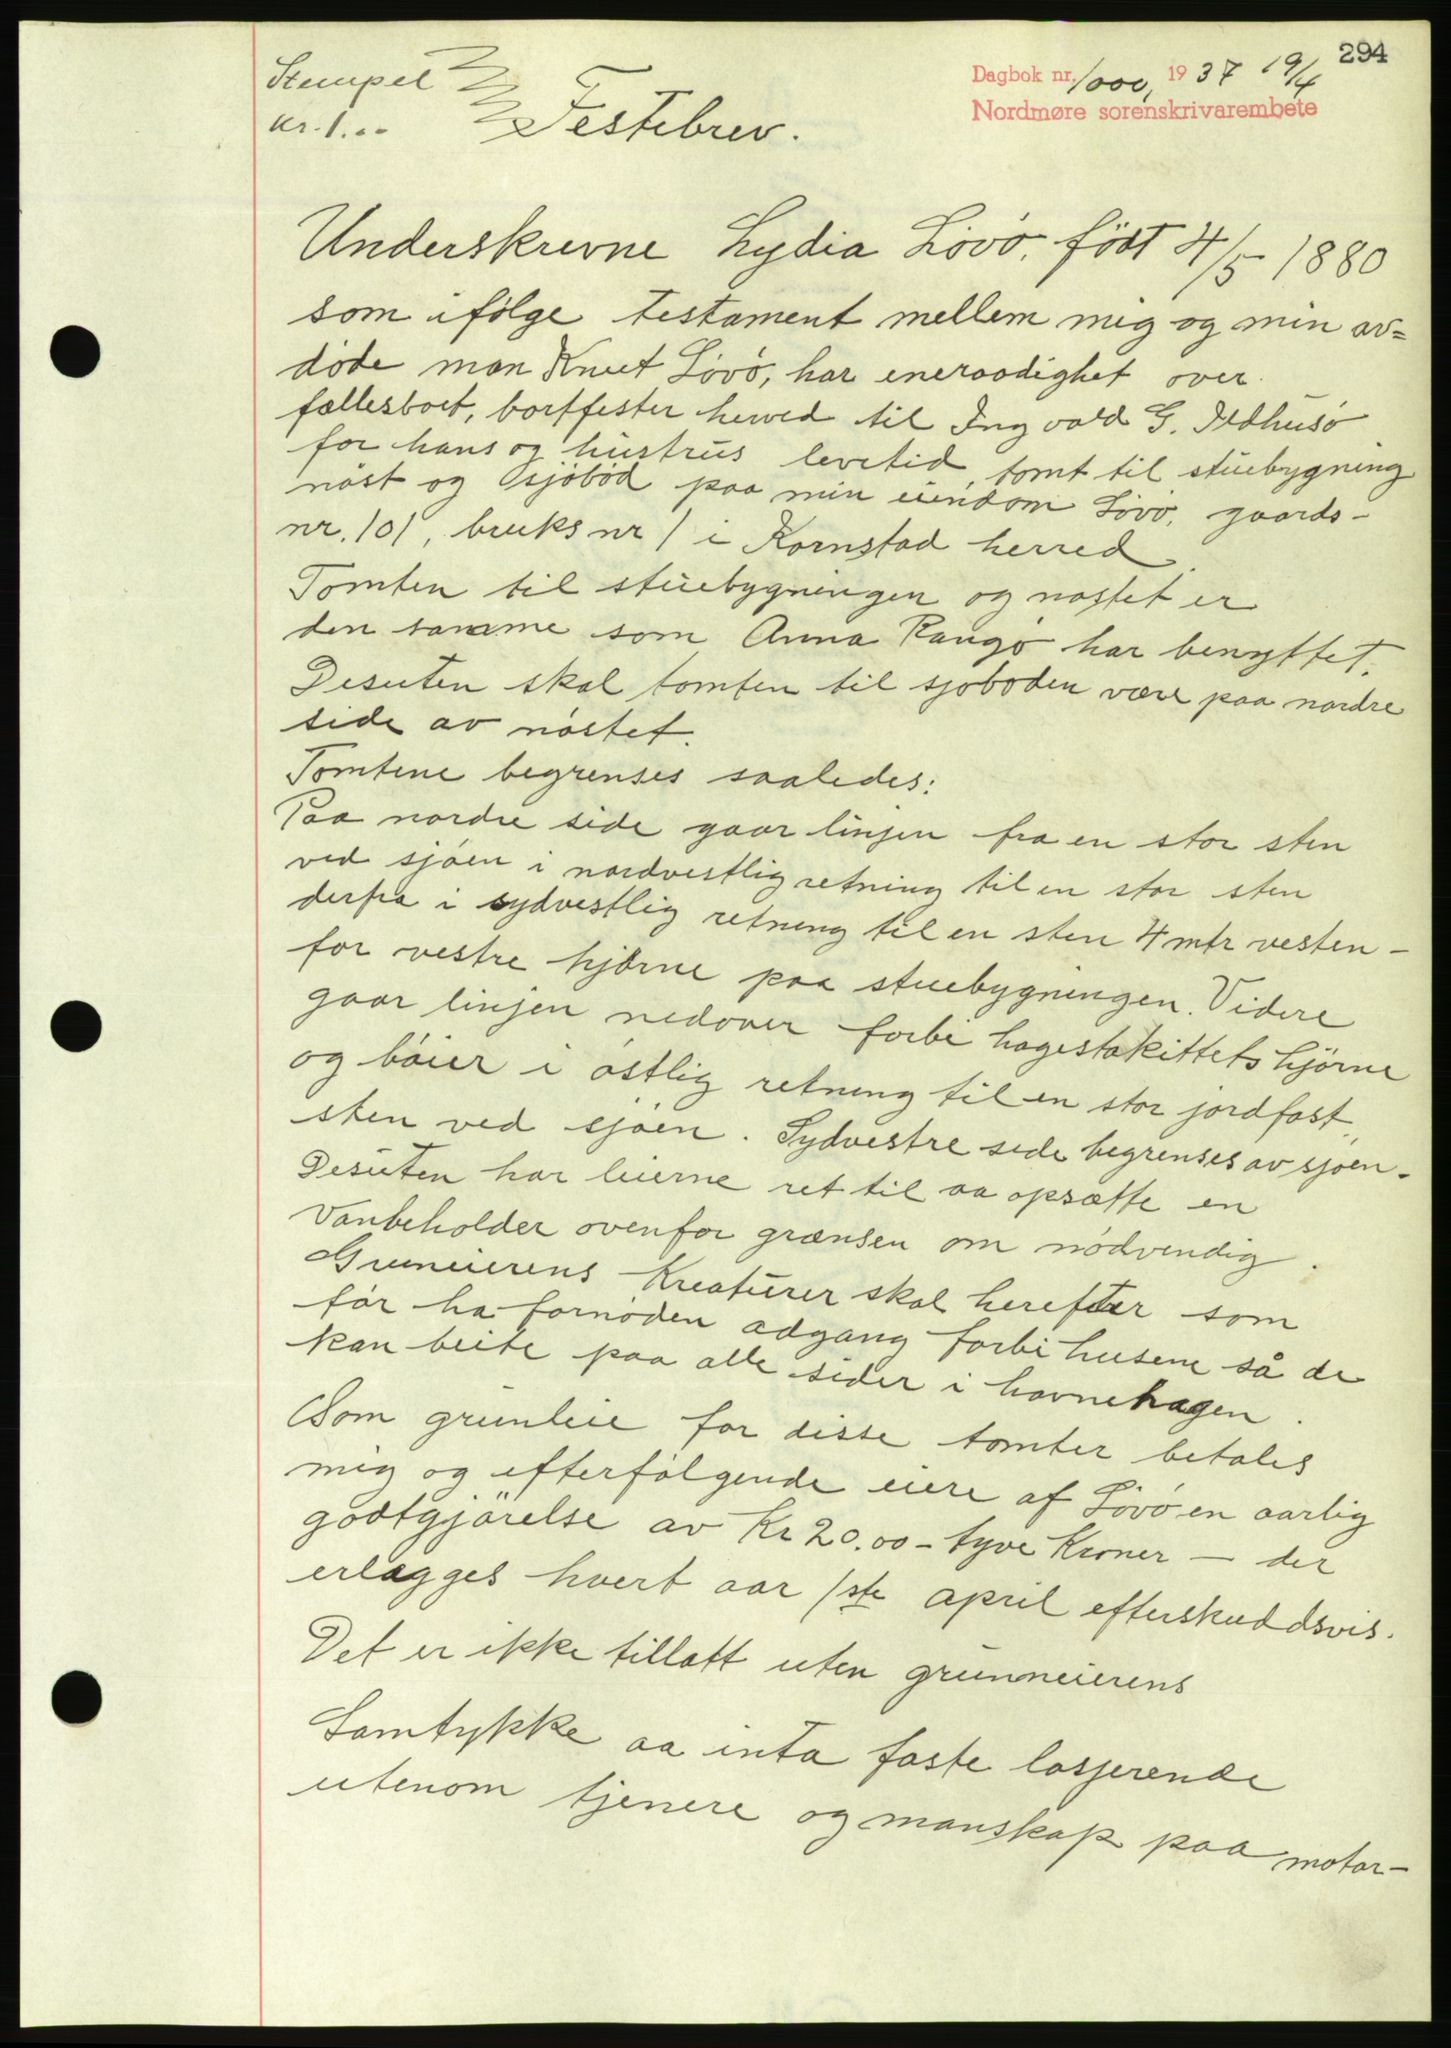 294
Stempel
kr. 1.00
Dagbok nr. 1000, 1937 19/4
Nordmøre sorenskrivarembete
Festebrev.
Underskrevne Lydia Lövö, född 4/5 1880
som ifölge testament mellem mig og min av=
döde man Knut Lövö, har eneraadighet over
fællesboet, bortfester herved til Ingvald G. Ildhusö
for hans og hustrus levetid tomt til stuebygning
nöst og sjöbod paa min eiendom Lövö, gaards-
nr. 101, bruks nr 1 i Kornstad herred
Tomten til stuebygningen og nöstet er
den samme som Anna Rangö har benyttet.
Desuten skal tomten til sjöboden være paa nordre
side av nöstet.
Tomtene begrenses saaledes:
Paa nordre side gaar linjen fra en stor sten
ved sjöen i nordvestlig retning til en stor sten
derfra i sydvestlig retning til en sten 4 mtr vesten-
for vestre hjörne paa stuebygningen. Videre
gaar linjen nedover forbi hagestakittets hjörne
og böier i östlig retning til en stor jordfast
sten ved sjöen. Sydvestre side begrenses av sjöen.
Desuten har leierne ret til aa opsætte en
Vanbeholder ovenfor grænsen om nödvendig.
Gruneierens Kreaturer skal herefter som
för ha fornöden adgang forbi husene så de
kan beite paa alle sider i havnehagen.
Som grunleie for disse tomter betales
mig og efterfölgende eiere af Lövö en aarlig
godtgjörelse av Kr 20.00 - tyve Kroner - der
erlægges hvert aar 1ste april efterskuddsvis.
Det er ikke tillatt uten grunneierens
Samtykke aa inta faste losjerende
utenom tjenere og manskap paa motor-